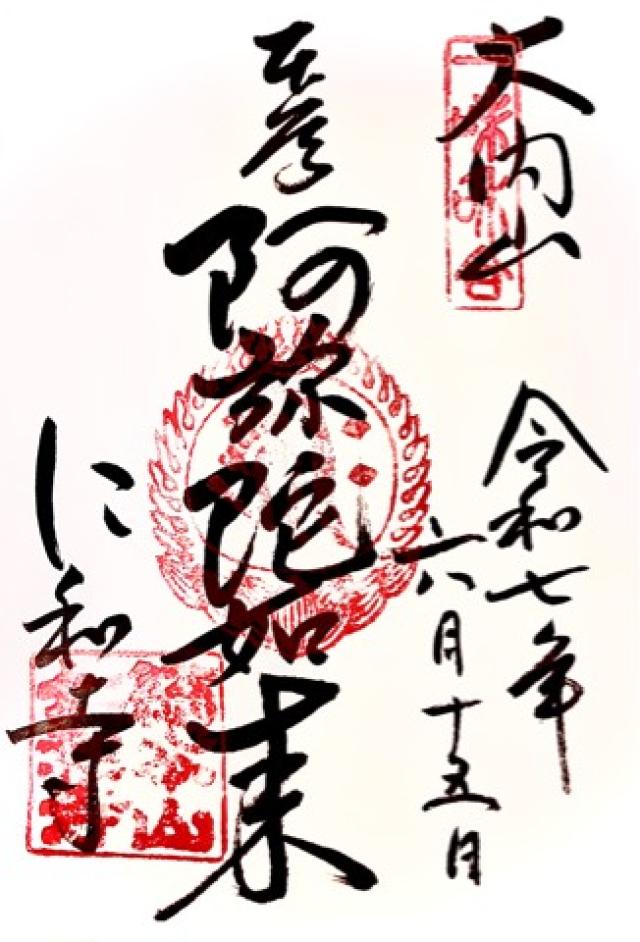 大内山
令和七年
六月十五日
本尊
阿弥陀如来
仁和寺